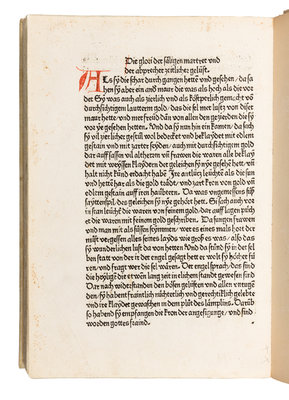 Die glori der säligen martrer und
der abprecher zeitlicher gelüst.
Als sy die schar durch gangen hetten und gesehen, da sa
hen sy aber ein and maur die was als hoch als die vor
der Sy was auch als zierlich und als köstperlich gemacht võ
durchsichtigem lautterm gold, das die sel mer lust von diser
maur hette, und mer freid dan von allen den gezierden die sy
vor ye gesehen hetten. Und da sy nun hin ein komen, da sach
sy vil zierlicher gestiel von und beklaydet mit edlem
gestain und mit zarter seyden, auch mit durchsichtigem gold
dar auff sassen vil altherren vñ frawen die waren alle beklay
det mit weyssen klaydern der geleichen sy nye gesehen hett. Si
halt nicht künd erdacht habe. Ire antlütz leüchtet als die sun
und hettẽ har als die gold tadig, und zart kron von gold vñ
edlem gestain auff iren heübtern. Da was ungemessen süß
saytenspil, des geleichen sy nye gehört hett. Si sach auch vor
in stan leücht die waren von feinem gold, dar auff lagen püch
er die waren mit feinem gold geschriben. Da sungen frawen
und man mit als süssen stymmen, wer es eines mals hört der
müst vergessen alles seines layds, wie groß es was, also das
sy wunderlichen lust da von hetten. Und da stünd sy in der sel
ben statt von der it der engel gesagt hett er wolt sy höcher fü
ren, und fragt wer die sel wären. Der engel sprach, das sind
die heyligẽ die ir leben lang
Dar nach widerstanden den bösen gelüsten und allen untugen
den, sy habent fraintlich nüchterlich und gerechticklich gelebte
und ire klaydet gewaschen in dem plüt des lämplins. Darüb
so habend sy empfangen die kron der angesigunge, und sind
worden gottes fraind.